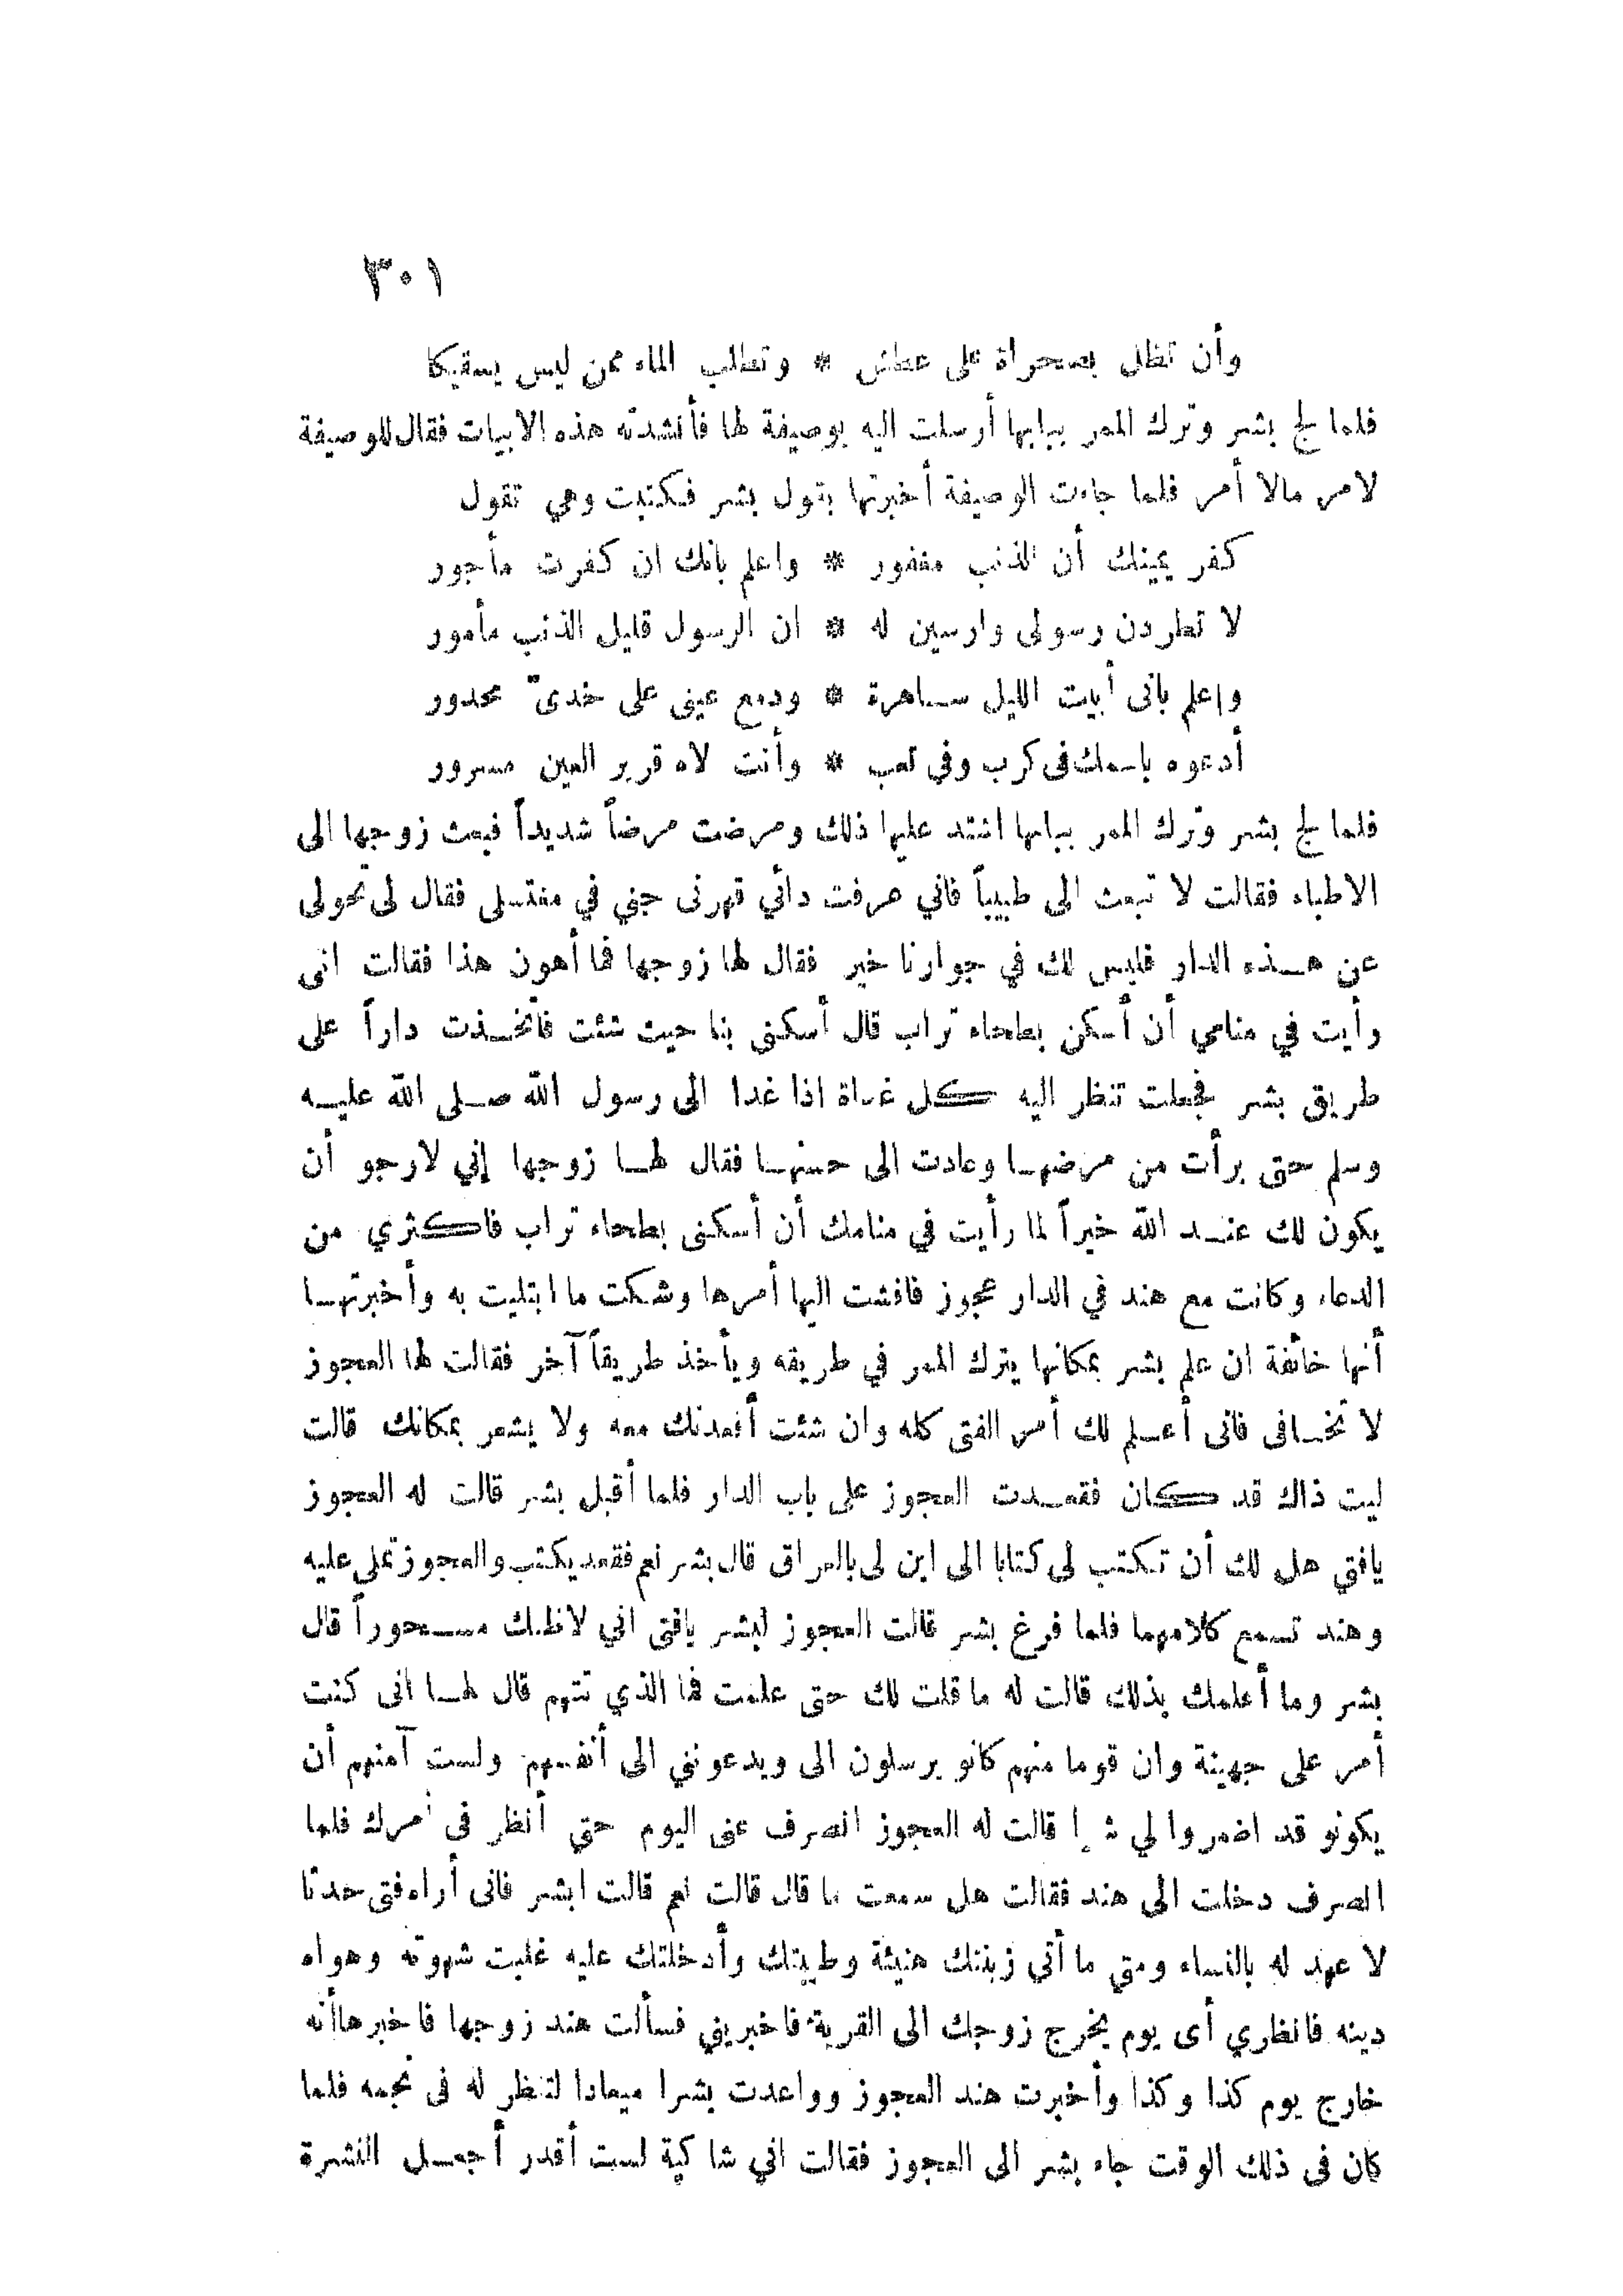 ٣٠١
وأن تظل بصحراة على عطش * وتطلب الماء ممن ليس يسقيكا
فلما لج بشر وترك الممر ببابها أرسلت اليه بوصيفة لها فأنشدته هذه الابيات فقال للوصيفة
لامر مالا أمر فلما جاءت الوصيفة أخبرتها بقول بشر فكتبت وهي تقول
كفر يمينك أن الذنب مغفور * واعلم بانك ان كفرت مأجور
لا تطردن رسولى وارسين له * ان الرسول قليل الذنب مأمور
واعلم بانى أبيت الليل ساهرة * ودمع عينى على خدىّ محدور
أدعوه باسمك فى كرب وفي تعب * وأنت لاه قرير العين مسرور
فلما لج بشر وترك الممر ببابها اشتد عليها ذلك ومرضت مرضاً شديداً فبعث زوجها الى
الاطباء فقالت لا تبعث الى طبيباً فاني عرفت دائي قهرنى جني في مغتسلى فقال لى تحولى
عن هذه الدار فليس لك في جوارنا خير فقال لها زوجها فما أهون هذا فقالت انى
رأيت في منامي أن أسكن بطحاء تراب قال أسكنى بنا حيث شئت فاتخذت داراً على
طريق بشر فجعلت تنظر اليه كل غداة اذا غدا الى رسول الله صلى الله عليه
وسلم حتى برأت من مرضها وعادت الى حسنها فقال لها زوجها إني لارجو أن
يكون لك عند الله خيراً لما رأيت في منامك أن أسكنى بطحاء تراب فاكثري من
الدعاء وكانت مع هند في الدار عجوز فافشت اليها أمرها وشكت ما ابتليت به وأخبرتها
أنها خائفة ان علم بشر بمكانها يترك الممر في طريقه ويأخذ طريقاً آخر فقالت لها العجوز
لا تخافى فانى أعلم لك أمر الفتى كله وان شئت أقعدتك معه ولا يشعر بمكانك قالت
ليت ذاك قد كان فقعدت العجوز على باب الدار فلما أقبل بشر قالت له العجوز
يافتي هل لك أن تكتب لى كتابا الى ابن لى بالعراق قال بشر نعم فقعد يكتب والعجوز تملى عليه
وهند تسمع كلامهما فلما فرغ بشر قالت العجوز لبشر يافتى اني لاظنك مسحوراً قال
بشر وما أعلمك بذلك قالت له ما قلت لك حتى علمت فما الذي تتهم قال لها انى كنت
أمر على جهينة وان قوما منهم كانو يرسلون الى ويدعونني الى أنفسهم ولست آمنهم أن
يكونو قد اضمروا لي قالت له العجوز انصرف عنى اليوم حتي أنظر فى أمرك فلما
انصرف دخلت الى هند فقالت هل سمعت ما قال قالت نعم قالت ابشر فانى أراه فتى حدثا
لا عهد له بالنساء ومتي ما أتي زينتك هنيئة وطيبتك وأدخلتك عليه غلبت شهوته وهواه
دينه فانظري أى يوم يخرج زوجك الى القرية فاخبريني فسألت هند زوجها فاخبرها أنه
خارج يوم كذا وكذا وأخبرت هند العجوز وواعدت بشرا ميعادا لتنظر له فى نجمه فلما
كان فى ذلك الوقت جاء بشر الى العجوز فقالت اني شاكية لست أقدر أجعل النشرة